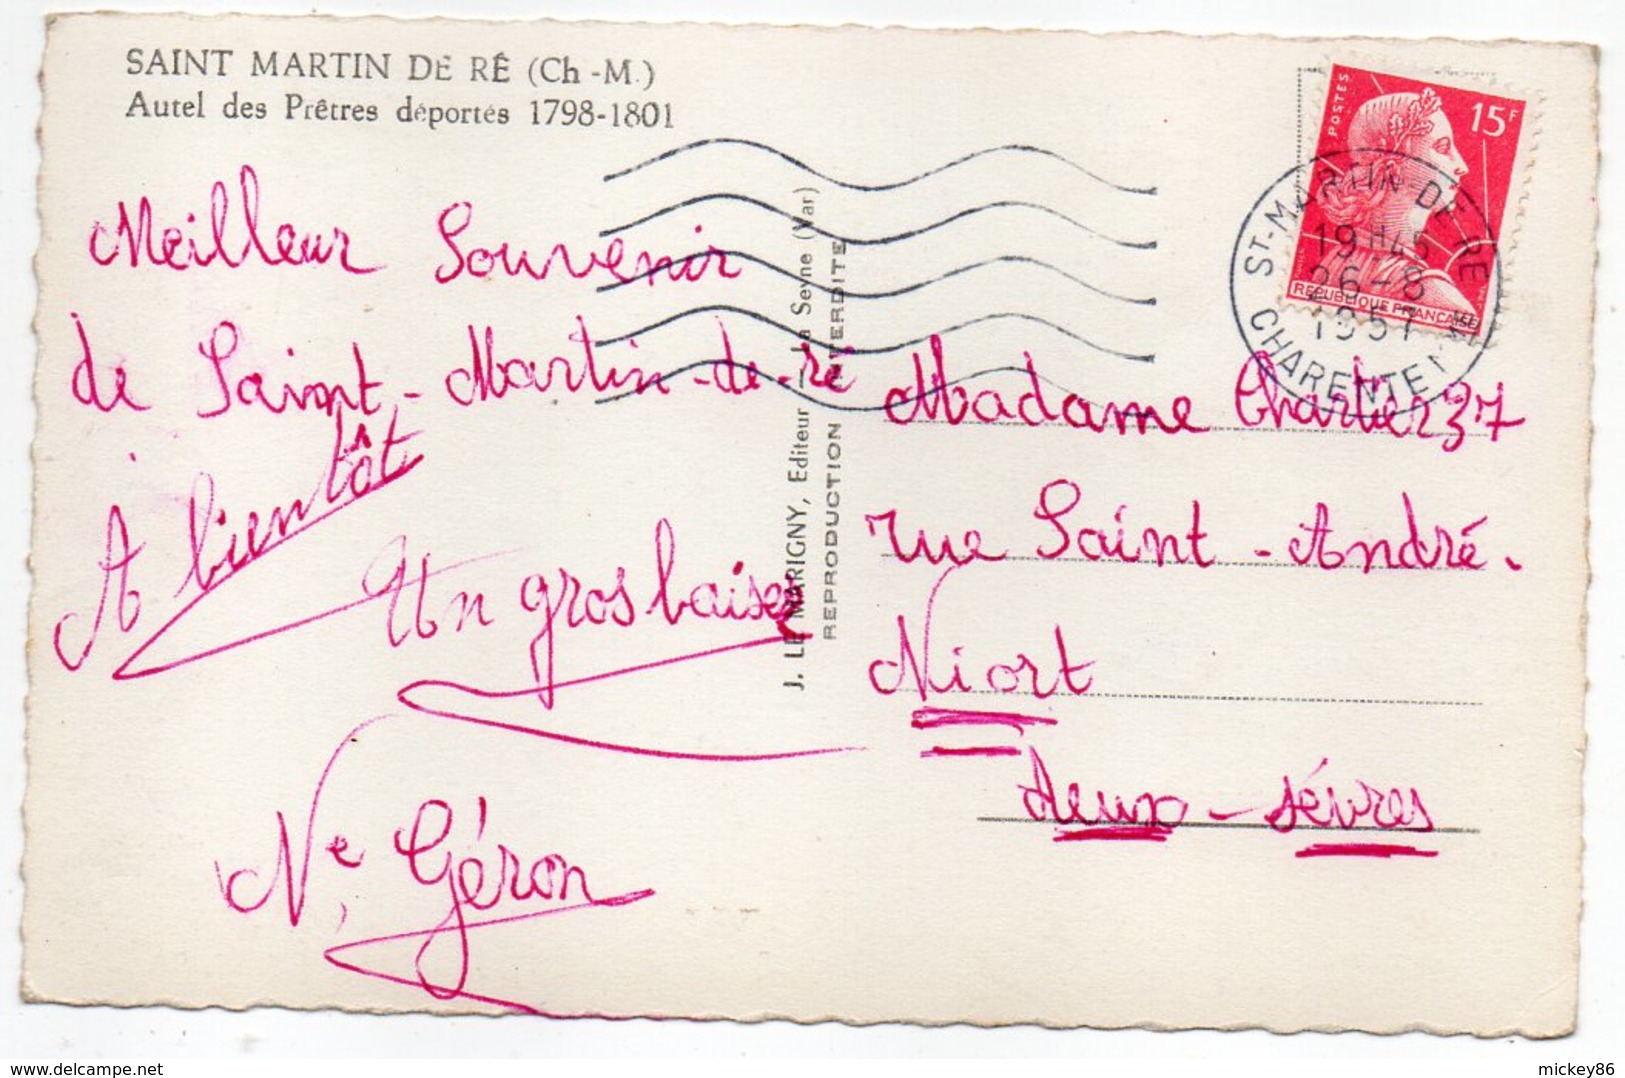 SAINT MARTIN DE RÉ (Ch-M.)
Autel des Prêtres déportés 1798-1801
Meilleur Souvenir
de Saint-Martin-de-ré
A bientôt
Un gros baiser
Ne Géron
J. LE MARIGNY, Editeur — La Seyne (Var)
REPRODUCTION INTERDITE
POSTES
15F
REPUBLIQUE FRANÇAISE
ST-MARTIN-DE RE
19 H45
26-8
1957
CHARENTE
Madame Chartier 37
rue Saint-André.
Niort
deux-sévres
mickey86